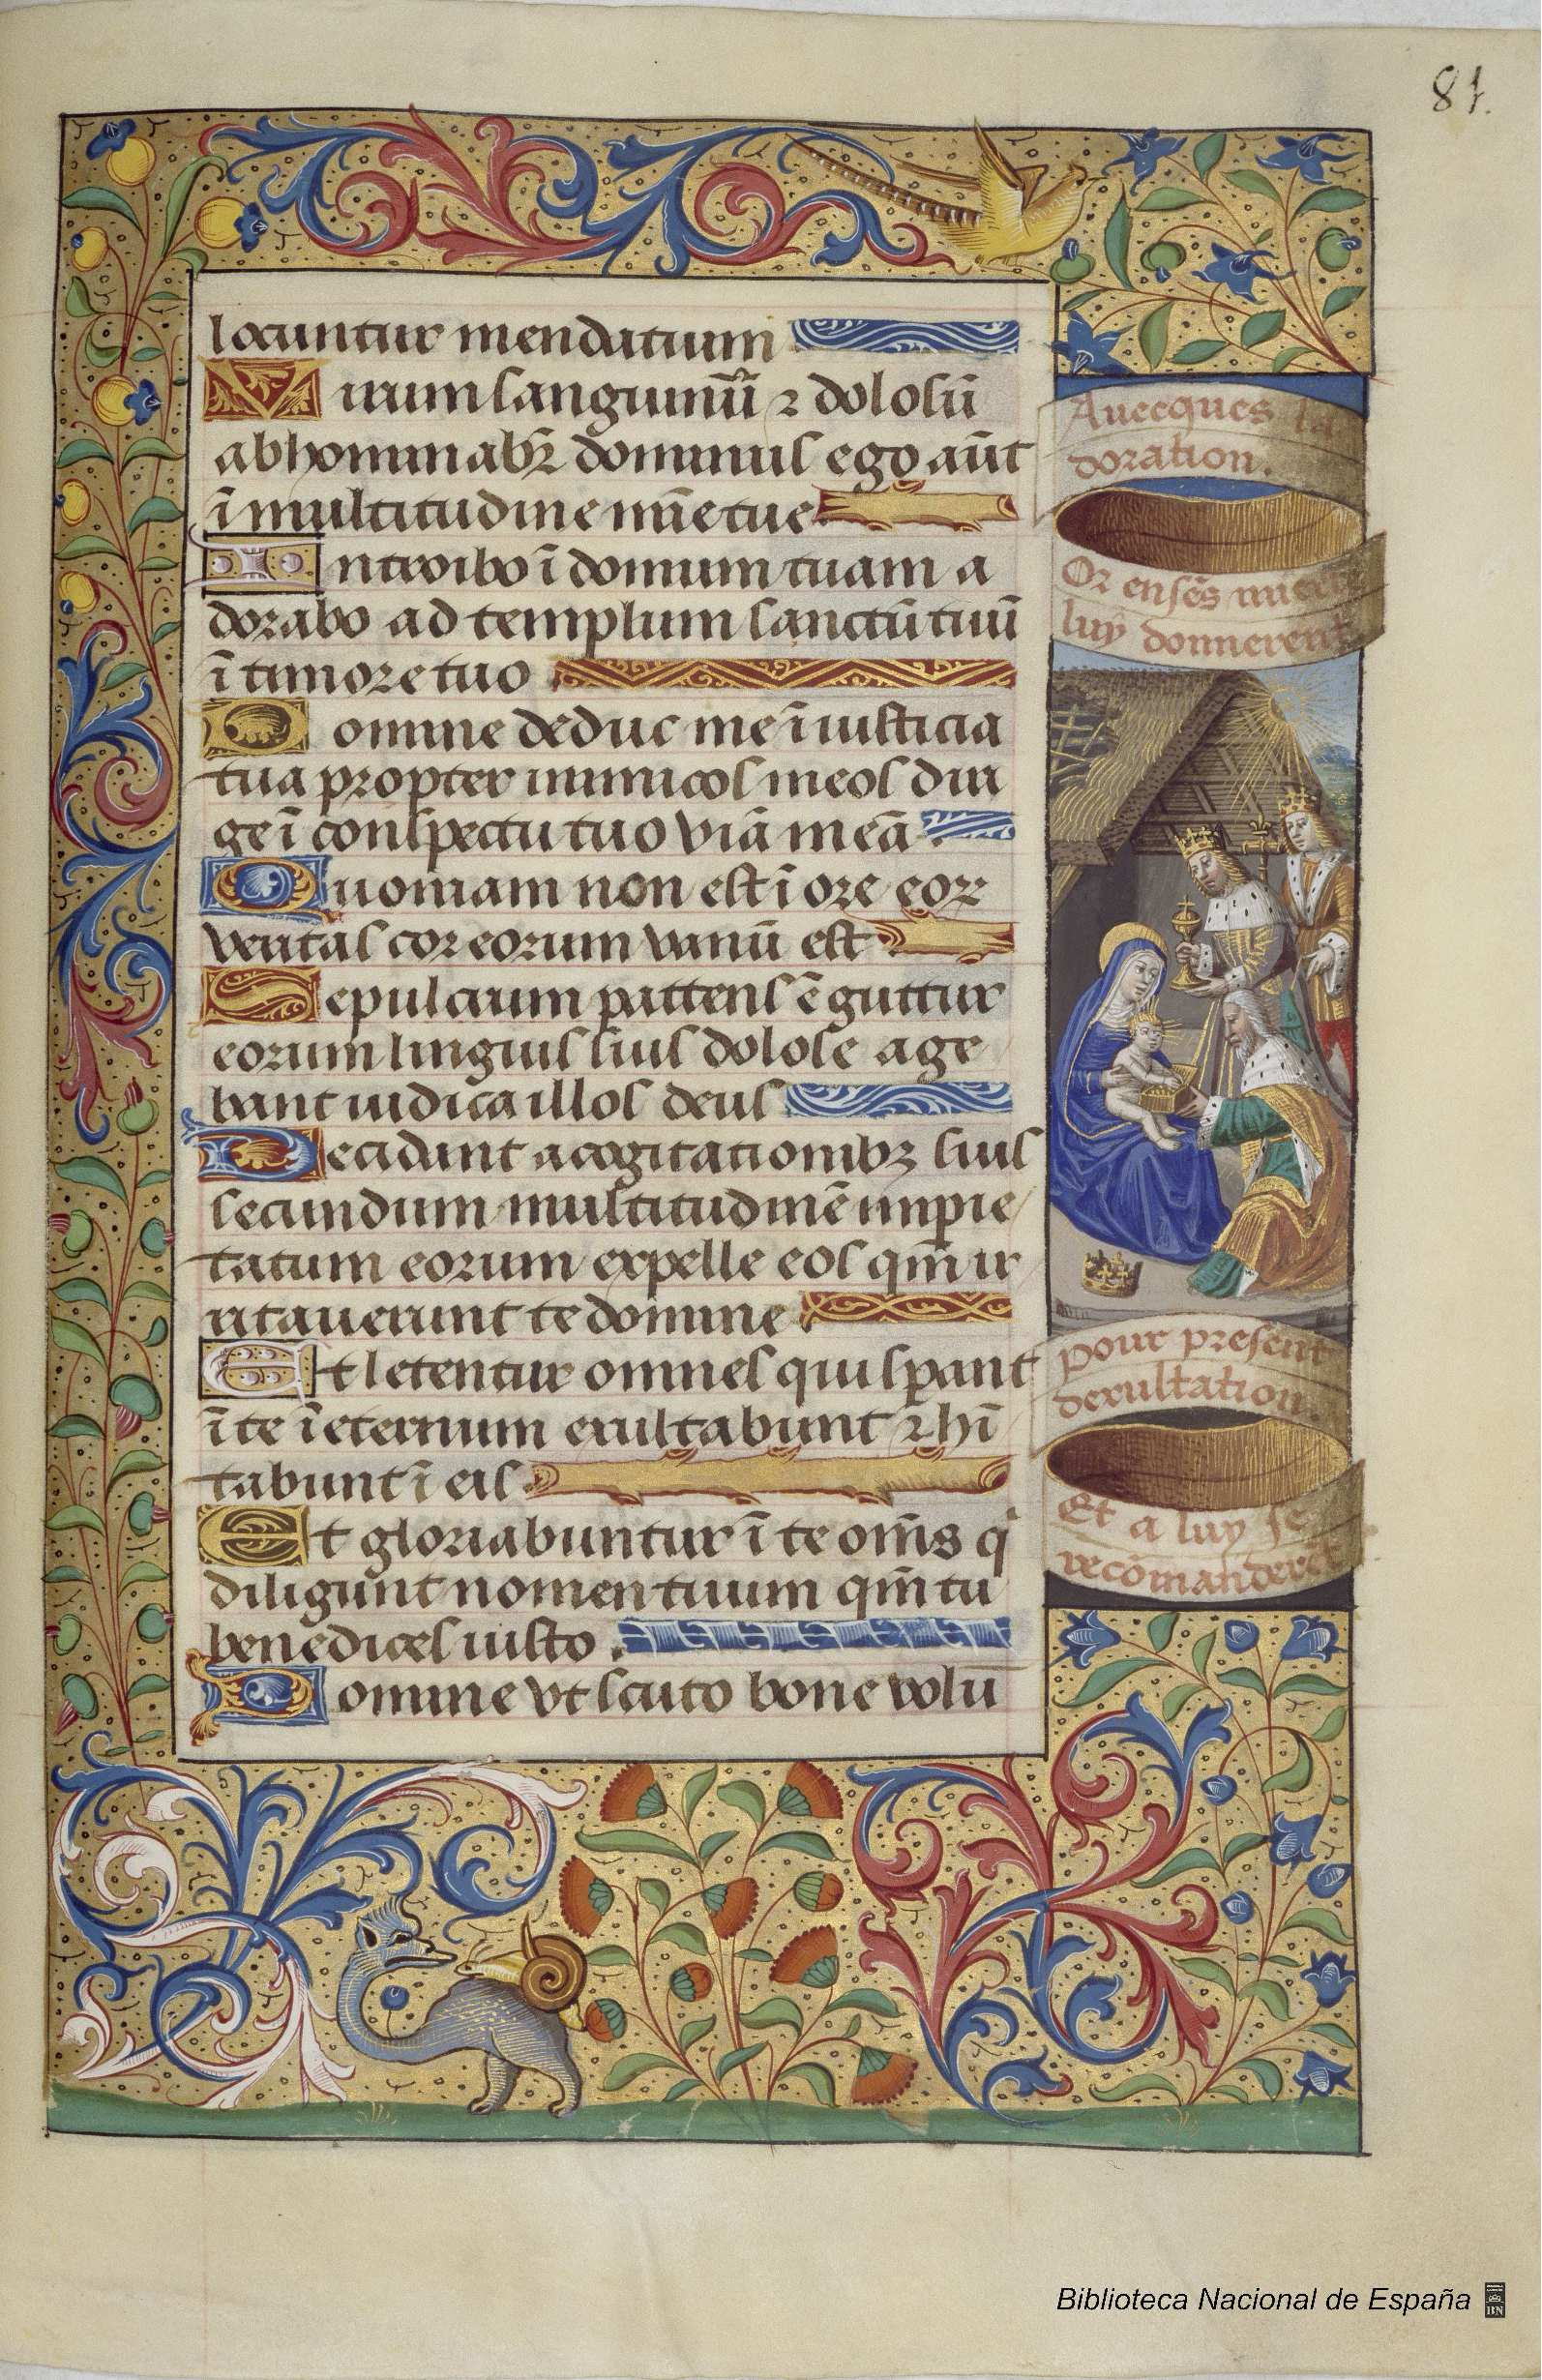 81.
locuntur mendatium
Uirum sanguinū ⁊ dolosū
abhominabꝛ dominus ego aūt
ī multitudine mīe tue
Introibo ī domum tuam a
dorabo ad templum sanctū tuū
ī timore tuo
Domine deduc me ī iusticia
tua propter inimicos meos diri
ge ī conspectu tuo viā meā.
Quoniam non est ī ore eoꝝ
veritas cor eorum vanū est
Sepulcrum pattens ē guttur
eorum linguis suis dolose age
bant iudica illos deus
Decidant a cogitationibꝫ suis
secundum multitudinē impie
tatum eorum expelle eos qm̄ ir
ritauerunt te domine
Et letentur omnes qui sꝑant
ī te ī eternum exultabunt ⁊ hī
tabunt ī eis
Et gloriabuntur ī te om̄s q
diligunt nomen tuum qm̄ tu
benedices iusto.
Domine vt scuto bone volū
Auecques la
doration.
Or ensēs mierre
luy donnerent
pour present
dexultation.
Et a luy se
recōmanderēt
Biblioteca Nacional de España